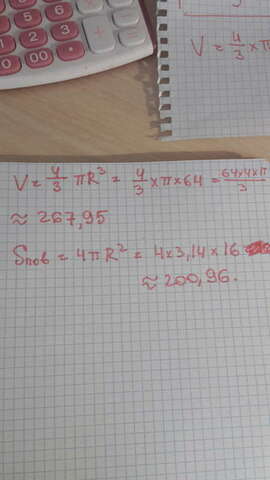 6
5
6
3
2
3
0
00
V = 4/3 × π
V = 4/3 πR³ = 4/3 × π × 64 = 64×4×π/3
≈ 267,95
Sпов = 4πR² = 4×3,14×16
≈ 200,96.